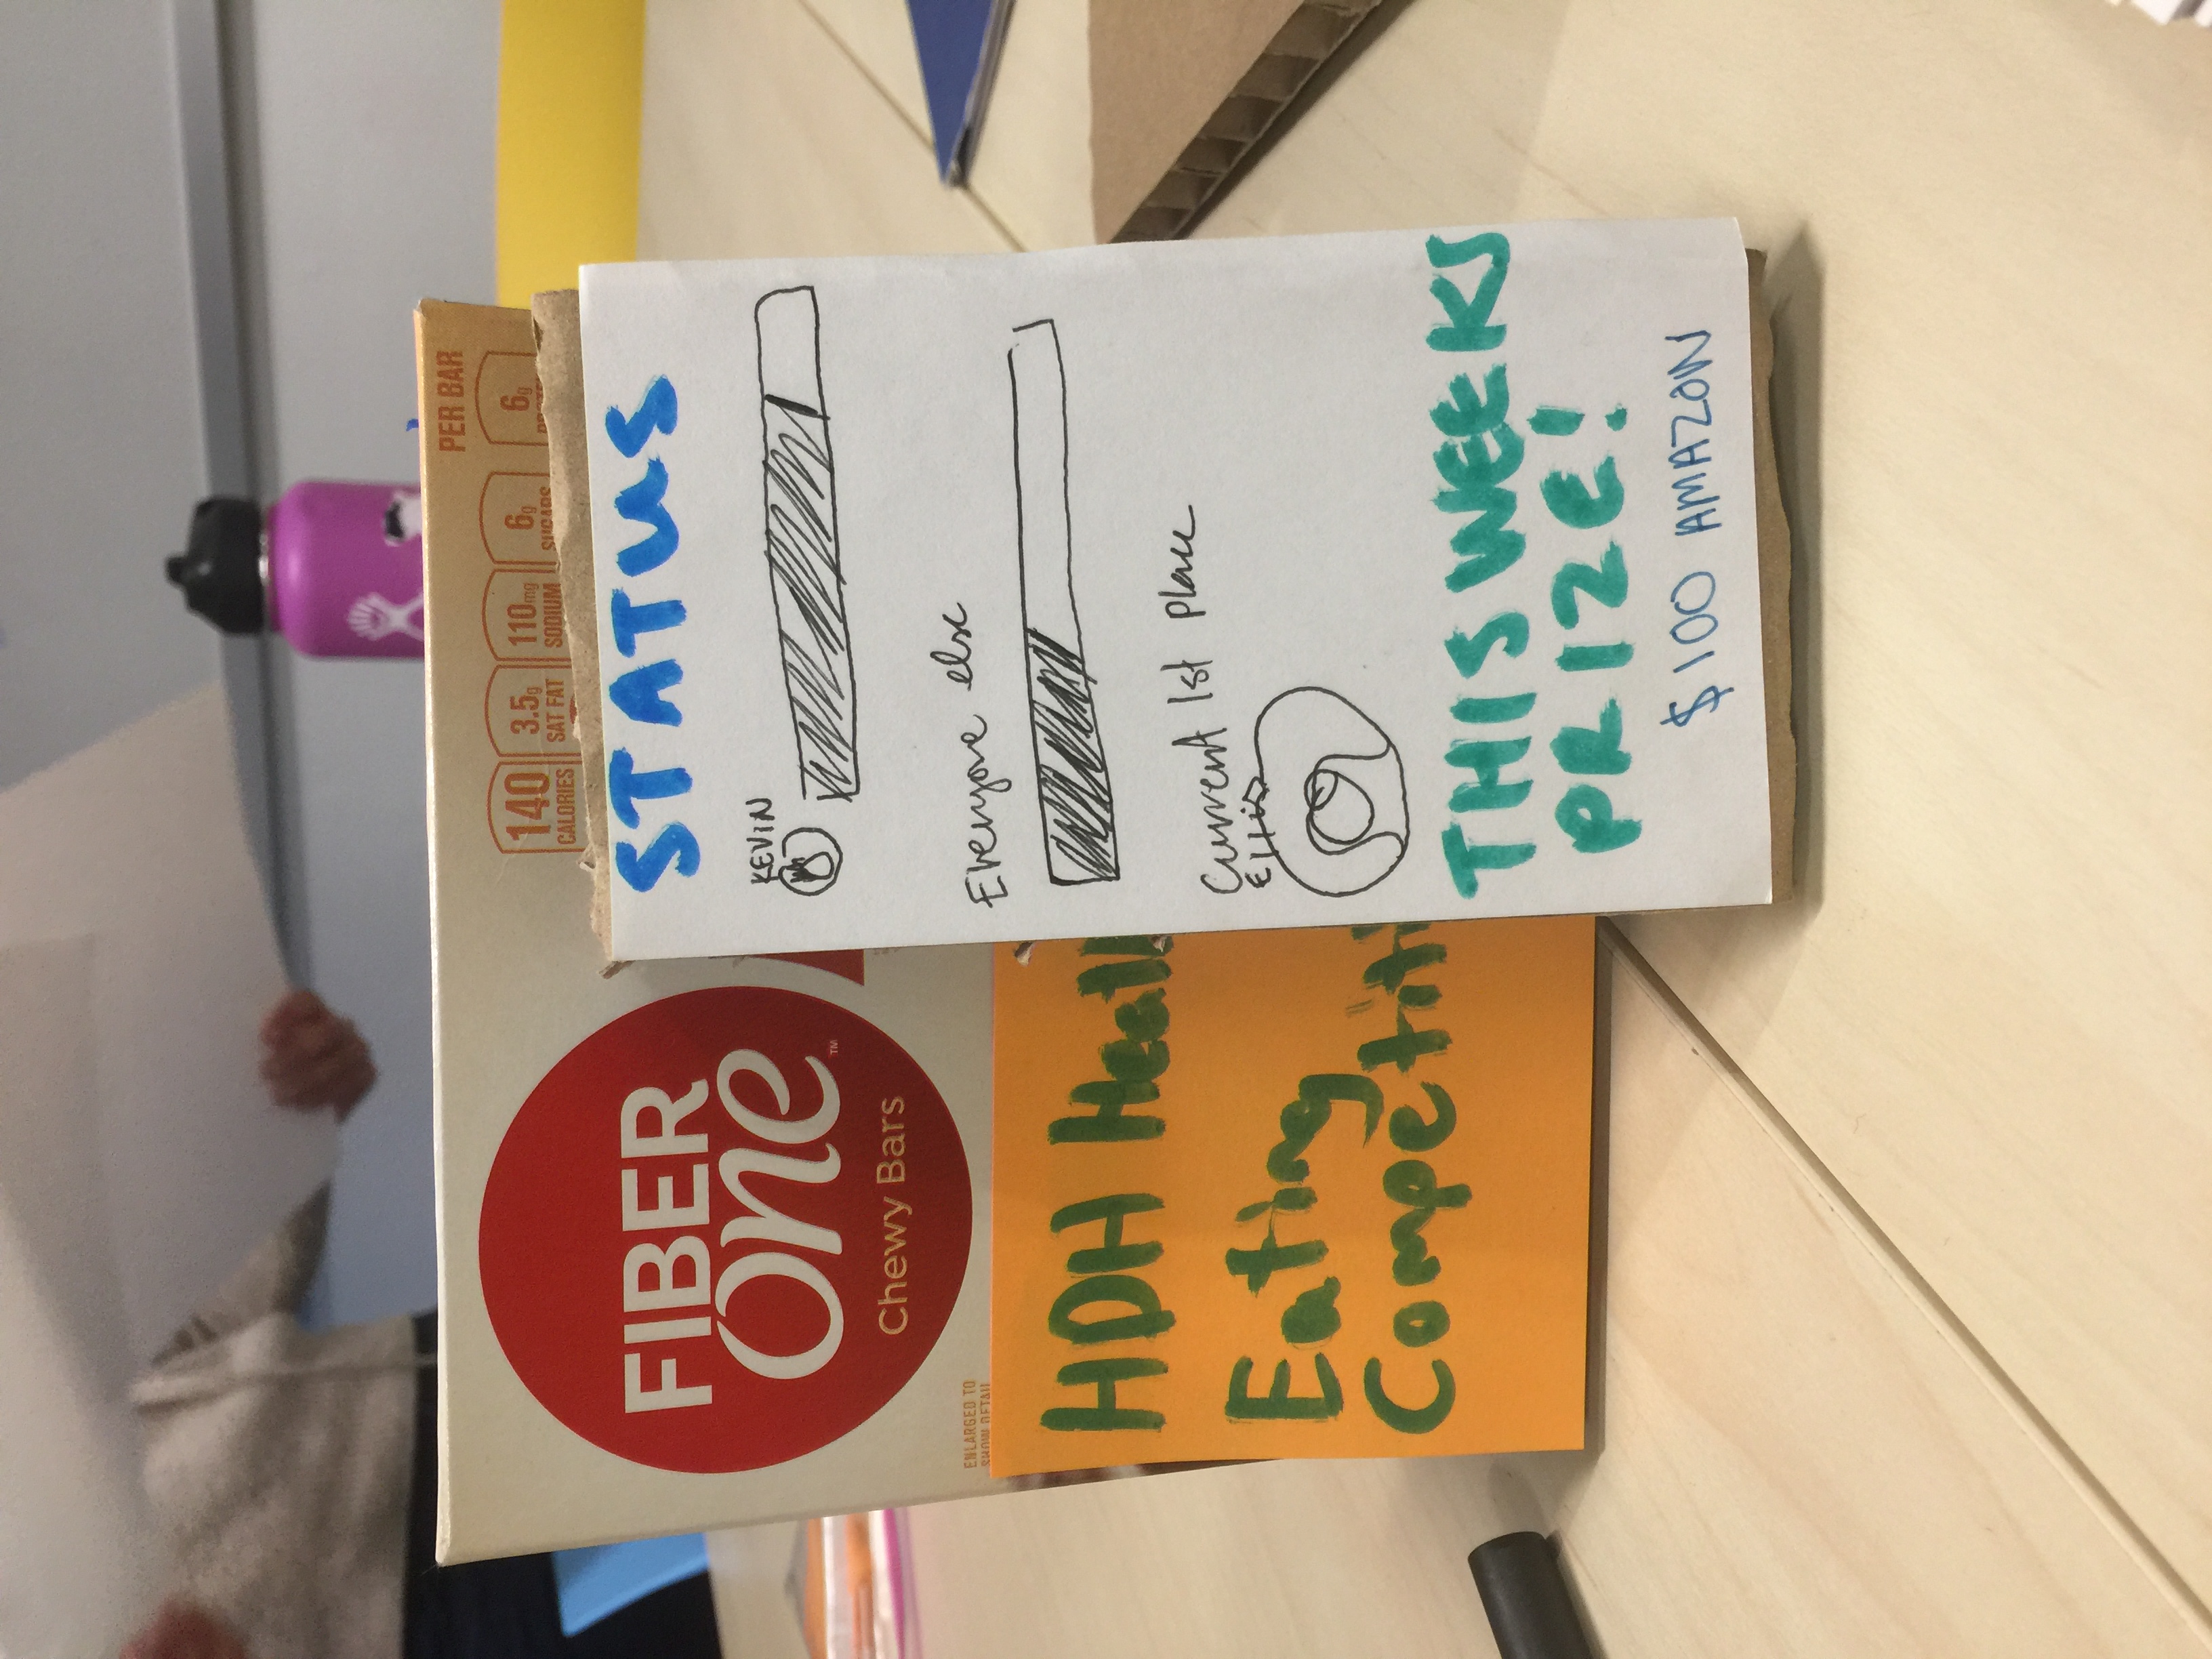 PER BAR
140
CALORIES
3.5g
SAT FAT
110mg
SODIUM
6g
SUGARS
6g
FIBER
one
™
Chewy Bars
ENLARGED TO
SHOW DETAIL
HDH Healt
Eating
Competiti
STATUS
KEVIN
Everyone else
Current 1st Place
Ellis
THIS WEEKS
PRIZE!
$100 AMAZON